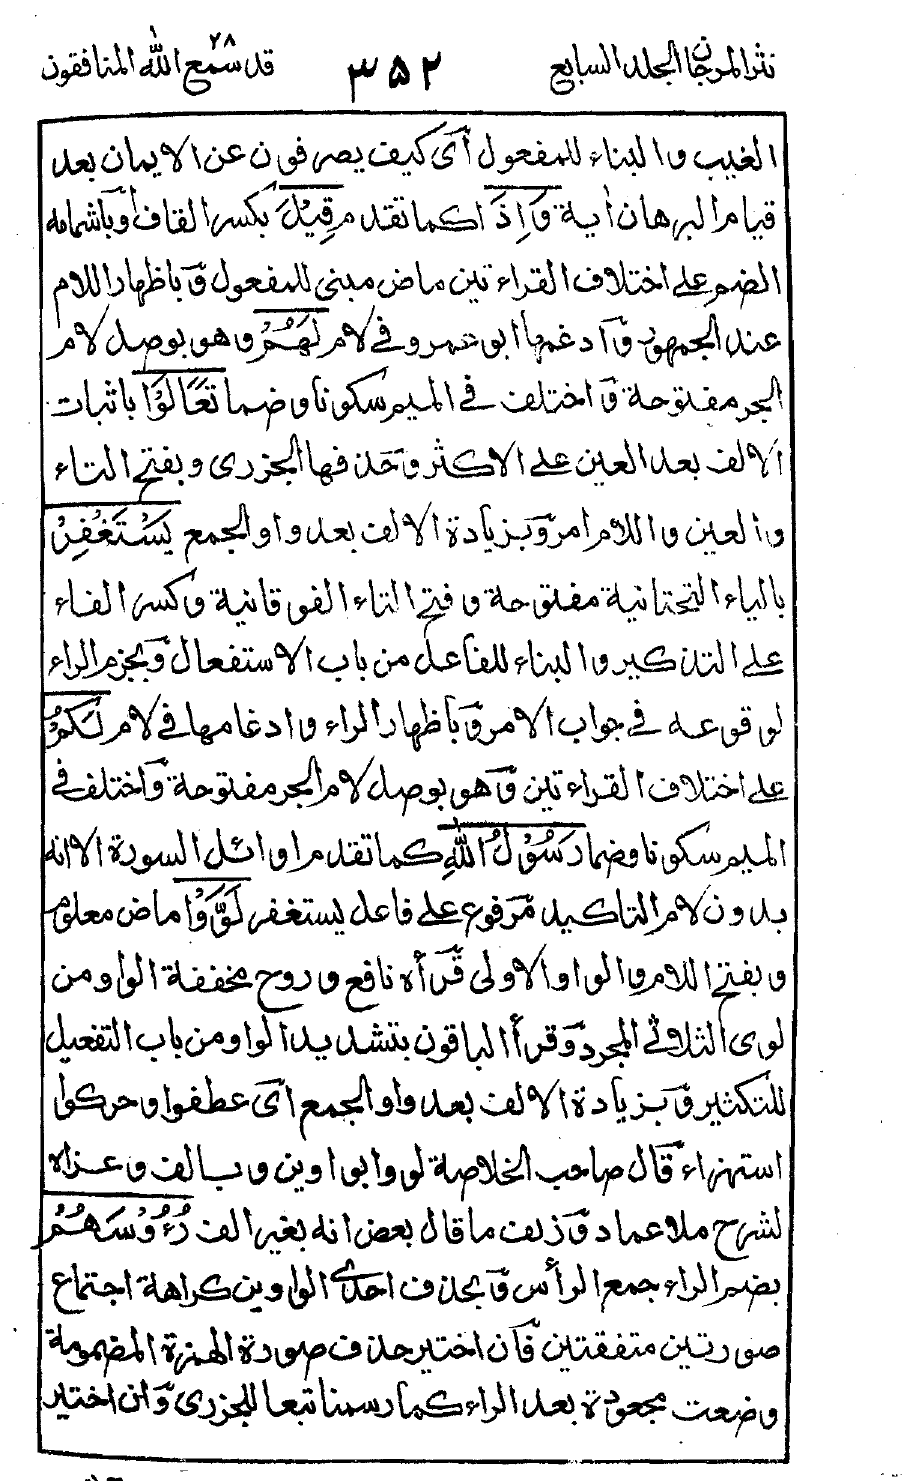 نثر المرجان المجلد السابع ٣٥٢ قد سمع الله ٢٨ المنافقون
الغيب والبناء للمفعول أَى كيف يصرفون عن الايمان بعد
قيام البرهان أية وَإِذَا كما تقدم قِيْلَ بكسر القاف أو باشمامه
الضم على اختلاف القراءتين ماض مبنى للمفعول وَباظهار اللام
عند الجمهور وَادغمها أبو عمرو فى لام لَهُمْ وهو بوصل لام
الجر مفتوحة وَاختلف فى الميم سكونا وضما تَعَالَوْا باثبات
الالف بعد العين على الاكثر وحذفها الجزرى وبفتح التاء
والعين واللام امر وَبزيادة الالف بعد واو الجمع يَسْتَغْفِرْ
بالياء التحتانية مفتوحة وفتح التاء الفوقانية وكسر الفاء
على التذكير والبناء للفاعل من باب الاستفعال وَبجزم الراء
لوقوعه فى جواب الامر وَباظهار الراء وادغامها فى لام لَكُمْ
على اختلاف القراءتين وَهو بوصل لام الجر مفتوحة وَاختلف فى
الميم سكونا وضما رَسُوْلُ اللهِ كما تقدم اوائل السورة الا انه
بدون لام التاكيد مَرفوع على فاعل يستغفر لَوَّوْا ماض معلوم
وبفتح اللام والواو الاولى قَرأه نافع وروح مخففة الواو من
لوى الثلاثى المجرد وَقرأ الباقون بتشديد الواو من باب التفعيل
للتكثير وَبزيادة الالف بعد واو الجمع اَى عطفوا وحركوا
استهزاء قَال صاحب الخلاصة لووا بواوين وبالف وعزاه
لشرح ملا عماد وَزيف ما قال بعض انه بغير الف رُءُوْسَهُمْ
بضم الراء جمع الرأس وَبحذف احدى الواوين كراهة اجتماع
صورتين متفقتين فَان اختير حذف صورة الهمزة المضمومة
وضعت مجعودة بعد الراء كما رسمنا تبعا للجزرى وَان اختير